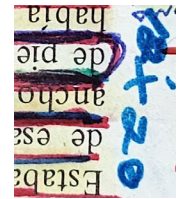 Estaba
de esa
ancho
de pie
había